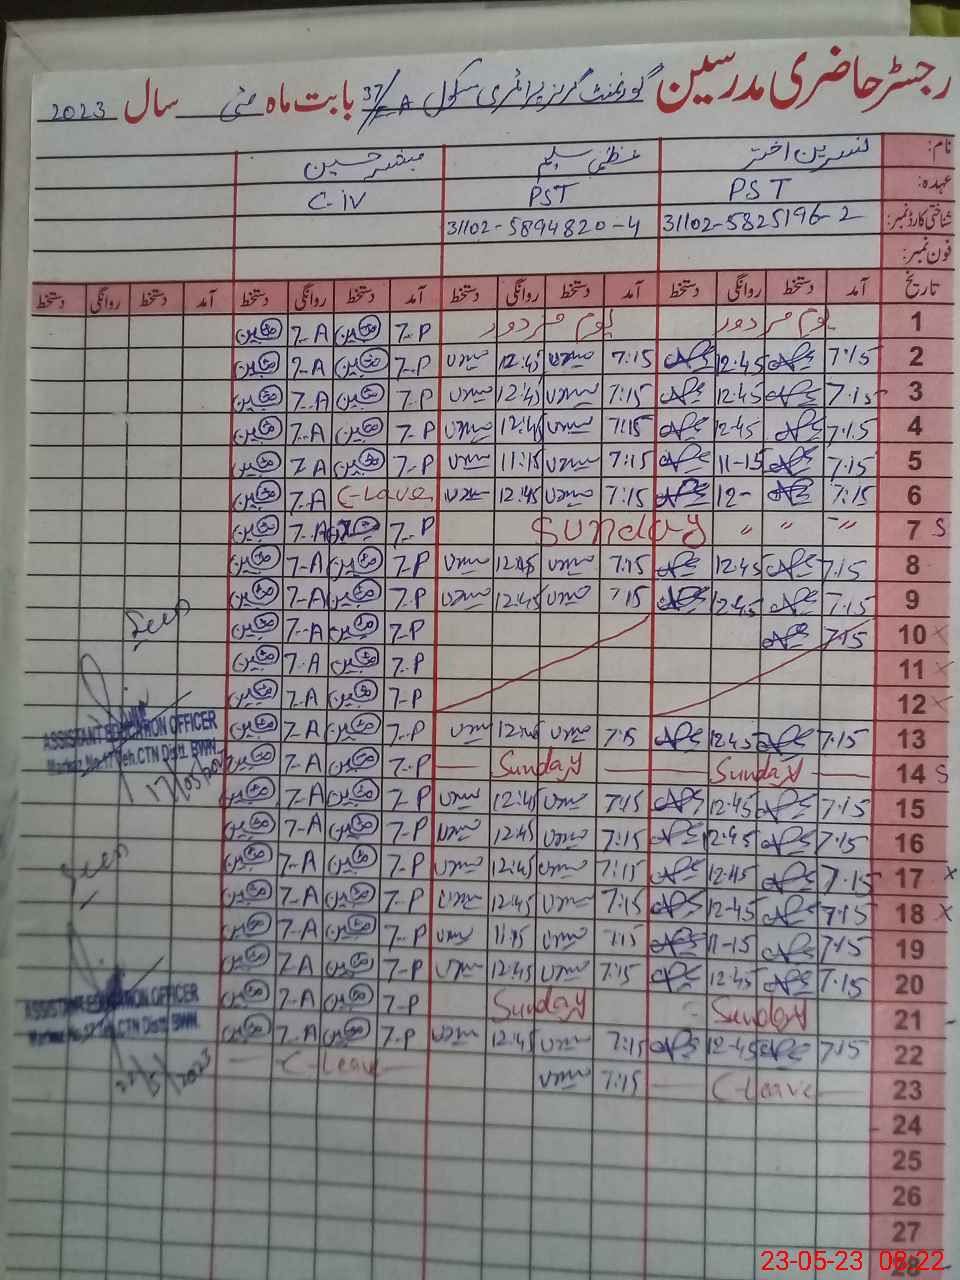 رجسٹر حاضری مدرسین گورنمنٹ گرلز پرائمری سکول 37/EA بابت ماہ مئی سال 2023
نام: نسرین اختر عظمیٰ سلیم مبشر حسین
عہدہ: PST PST C-iv
شناختی کارڈ نمبر: 31102-5825196-2 31102-5894820-4
فون نمبر:
تاریخ آمد دستخط روانگی دستخط آمد دستخط روانگی دستخط آمد دستخط روانگی دستخط آمد دستخط روانگی دستخط
1 یوم مزدور یوم مزدور 7-P 7-A
2 7:15 12:45 7:15 12:45 7-P 7-A
3 7:15 12:45 7:15 12:45 7-P 7-A
4 7:15 12:45 7:15 12:45 7-P 7-A
5 7:15 11-15 7:15 11:15 7-P 7-A
6 7:15 12- 7:15 12:45 C-Lave 7-A
7 S Sunday 〃 〃 〃 7-P 7-A
8 7:15 12:45 7:15 12:45 7-P 7-A
9 7:15 12:45 7:15 12:45 7-P 7-A
10 7:15 7-P 7-A
11 7-P 7-A
12 7-P 7-A
13 7:15 12:45 7:15 12:45 7-P 7-A
14 S Sunday Sunday 7-P 7-A
15 7:15 12:45 7:15 12:45 7-P 7-A
16 7:15 12:45 7:15 12:45 7-P 7-A
17 7:15 12:45 7:15 12:45 7-P 7-A
18 7:15 12-45 7:15 12:45 7-P 7-A
19 7:15 11-15 7:15 11:15 7-P 7-A
20 7:15 12:45 7:15 12:45 7-P 7-A
21 Sunday Sunday 7-P 7-A
22 7:15 12-45 7:15 12:45 7-P 7-A
23 C-Leave 7:15 C-Leave
24
25
26
27
28
Seen
ASSISTANT EDUCATION OFFICER
Markaz No.17 Teh.CTN Distt. BWN.
17/05/2023
Seen
ASSISTANT EDUCATION OFFICER
Markaz No.17 Teh.CTN Distt. BWN.
22/5/2023
23-05-23 08:22